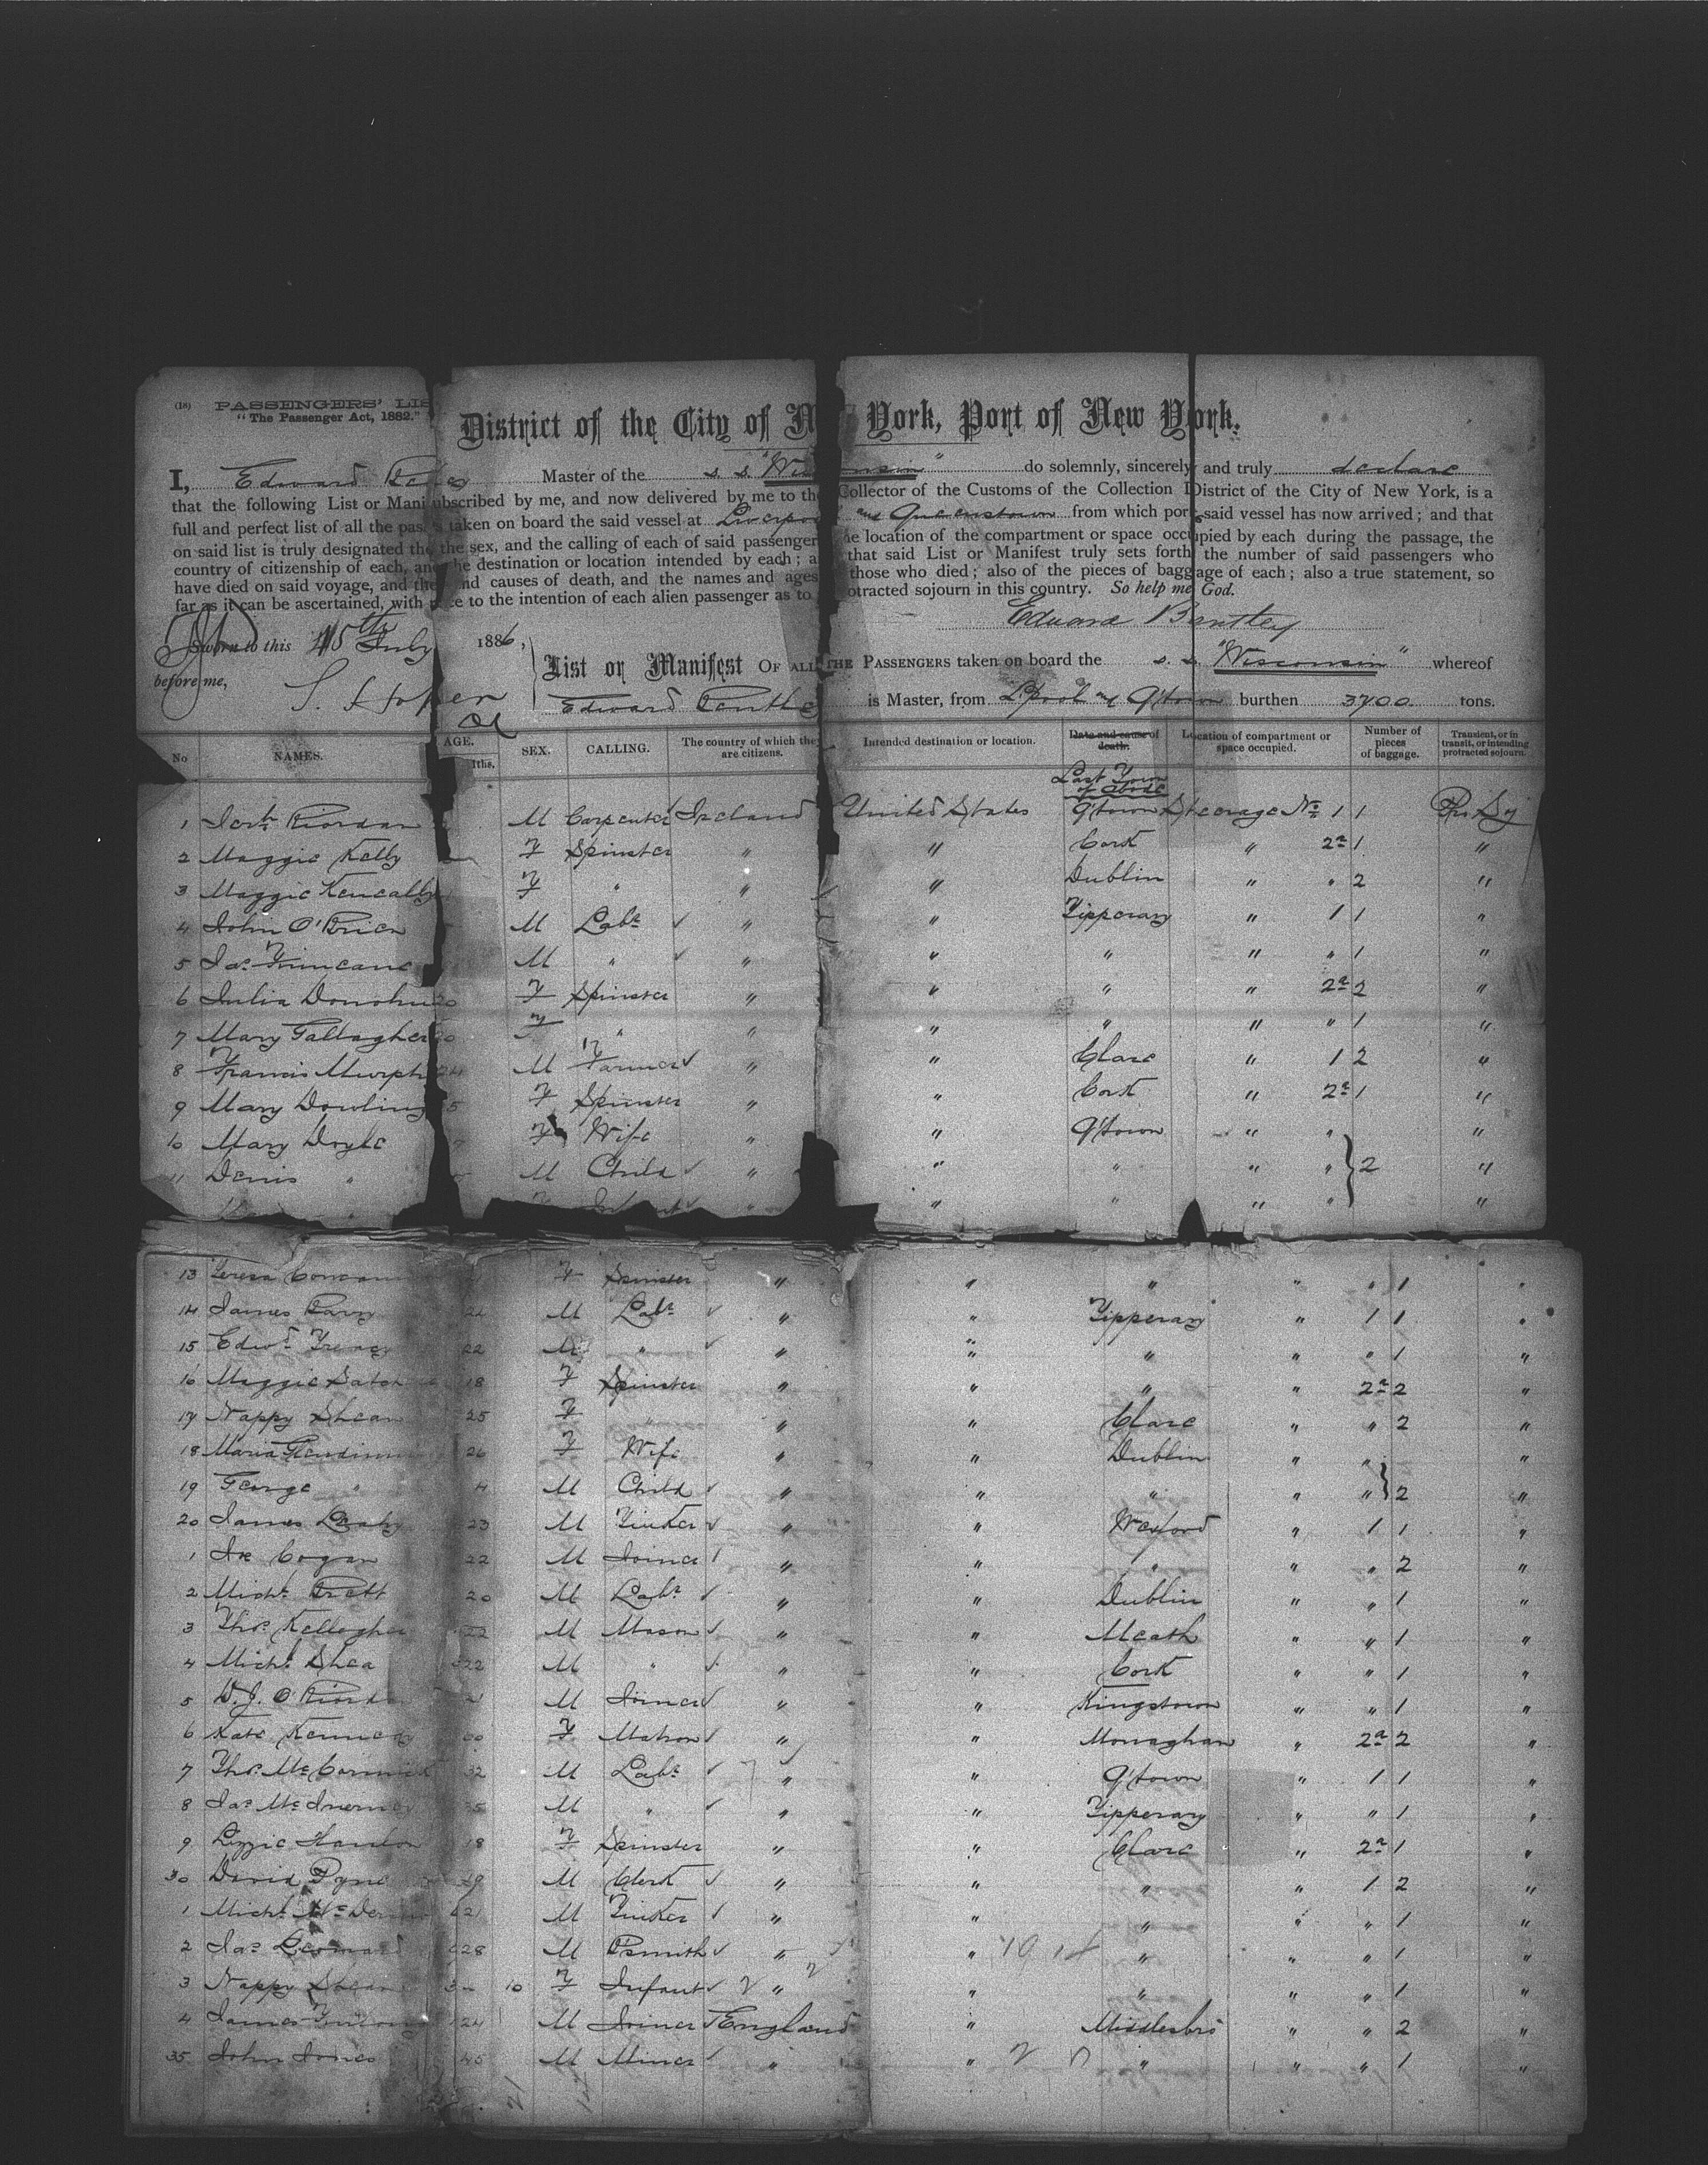 (18) PASSENGERS' LIS
"The Passenger Act, 1882."
District of the City of N York, Port of New York.
I, Edward Master of the s. s. "Wisconsin" do solemnly, sincerely and truly declare
that the following List or Mani ubscribed by me, and now delivered by me to the Collector of the Customs of the Collection District of the City of New York, is a
full and perfect list of all the pas s taken on board the said vessel at Liverpool and Queenstown from which port said vessel has now arrived; and that
on said list is truly designated the the sex, and the calling of each of said passenger he location of the compartment or space occupied by each during the passage, the
country of citizenship of each, and he destination or location intended by each; a that said List or Manifest truly sets forth the number of said passengers who
have died on said voyage, and the and causes of death, and the names and ages those who died; also of the pieces of baggage of each; also a true statement, so
far as it can be ascertained, with ce to the intention of each alien passenger as to otracted sojourn in this country. So help me God.
Edward Bentley
Sworn to this 15th July 1886,
before me,
List or Manifest OF ALL THE PASSENGERS taken on board the s. s. "Wisconsin" whereof
Edward Bentley is Master, from L'pool and Q'town burthen 3700 tons.
No NAMES. AGE. ths. SEX. CALLING. The country of which they are citizens. Intended destination or location. Date and cause of death. Location of compartment or space occupied. Number of pieces of baggage. Transient, or in transit, or intending protracted sojourn.
Last Town of abode
1 Riordan M Carpenter Ireland United States Q'town Steerage No. 1 1
2 Maggie Kelly F Spinster " " Cork " 2a 1 "
3 Maggie Keneally F " " " Dublin " " 2 "
4 John O'Brien M Labr " " Tipperary " 1 1 "
5 Jas Finucane M " " " " " " 1 "
6 Julia Donohu 20 F Spinster " " " " 2a 2 "
7 Mary Gallagher F " " " " " " 1 "
8 Francis Murph 24 M Farmer " " Clare " 1 2 "
9 Mary Dowling F Spinster " " Cork " 2a 1 "
10 Mary Doyle F Wife " " Q'town " " "
11 Denis " M Child " " " " " 2 "
" Infant " " " " " "
13 Teresa F Spinster " " " " " 1 "
14 James M Labr " " Tipperary " 1 1 "
15 Edwd 22 M " " " " " " 1 "
16 Maggie 18 F Spinster " " " " 2a 2 "
17 Nappy Shean 25 F " " " Clare " " 2 "
18 Maria 26 F Wife " " Dublin " " "
19 George " 4 M Child " " " " " 2 "
20 James Leahy 23 M Tinker " " Wexford " 1 1 "
1 Cogan 22 M Joiner " " " " " 2 "
2 Michl Brett 20 M Labr " " Dublin " " 1 "
3 Thos Kellegher 22 M Mason " " Meath " " 1 "
4 Michl Shea 22 M " " " Cork " " 1 "
5 D. J. O'Riordan M Joiner " " Kingstown " " 1 "
6 Kate Kennedy F Matron " " Monaghan " 2a 2 "
7 Thos McCormick 32 M Labr " " Q'town " 1 1 "
8 Jas McInerney 35 M " " " Tipperary " " 1 "
9 Lizzie Hanlon 18 F Spinster " " Clare " 2a 1 "
30 David Pyne M Clerk " " " " 1 2 "
1 Michl McDer 21 M Tinker " " " " " 1 "
2 Jas Leonard 28 M Bsmith " " " " " 1 "
3 Nappy Shean 10 F Infant " " " " " 1 "
4 James 24 M Joiner England " Middlesbro " " 2 "
35 John Jones 45 M Miner " " " " " 1 "